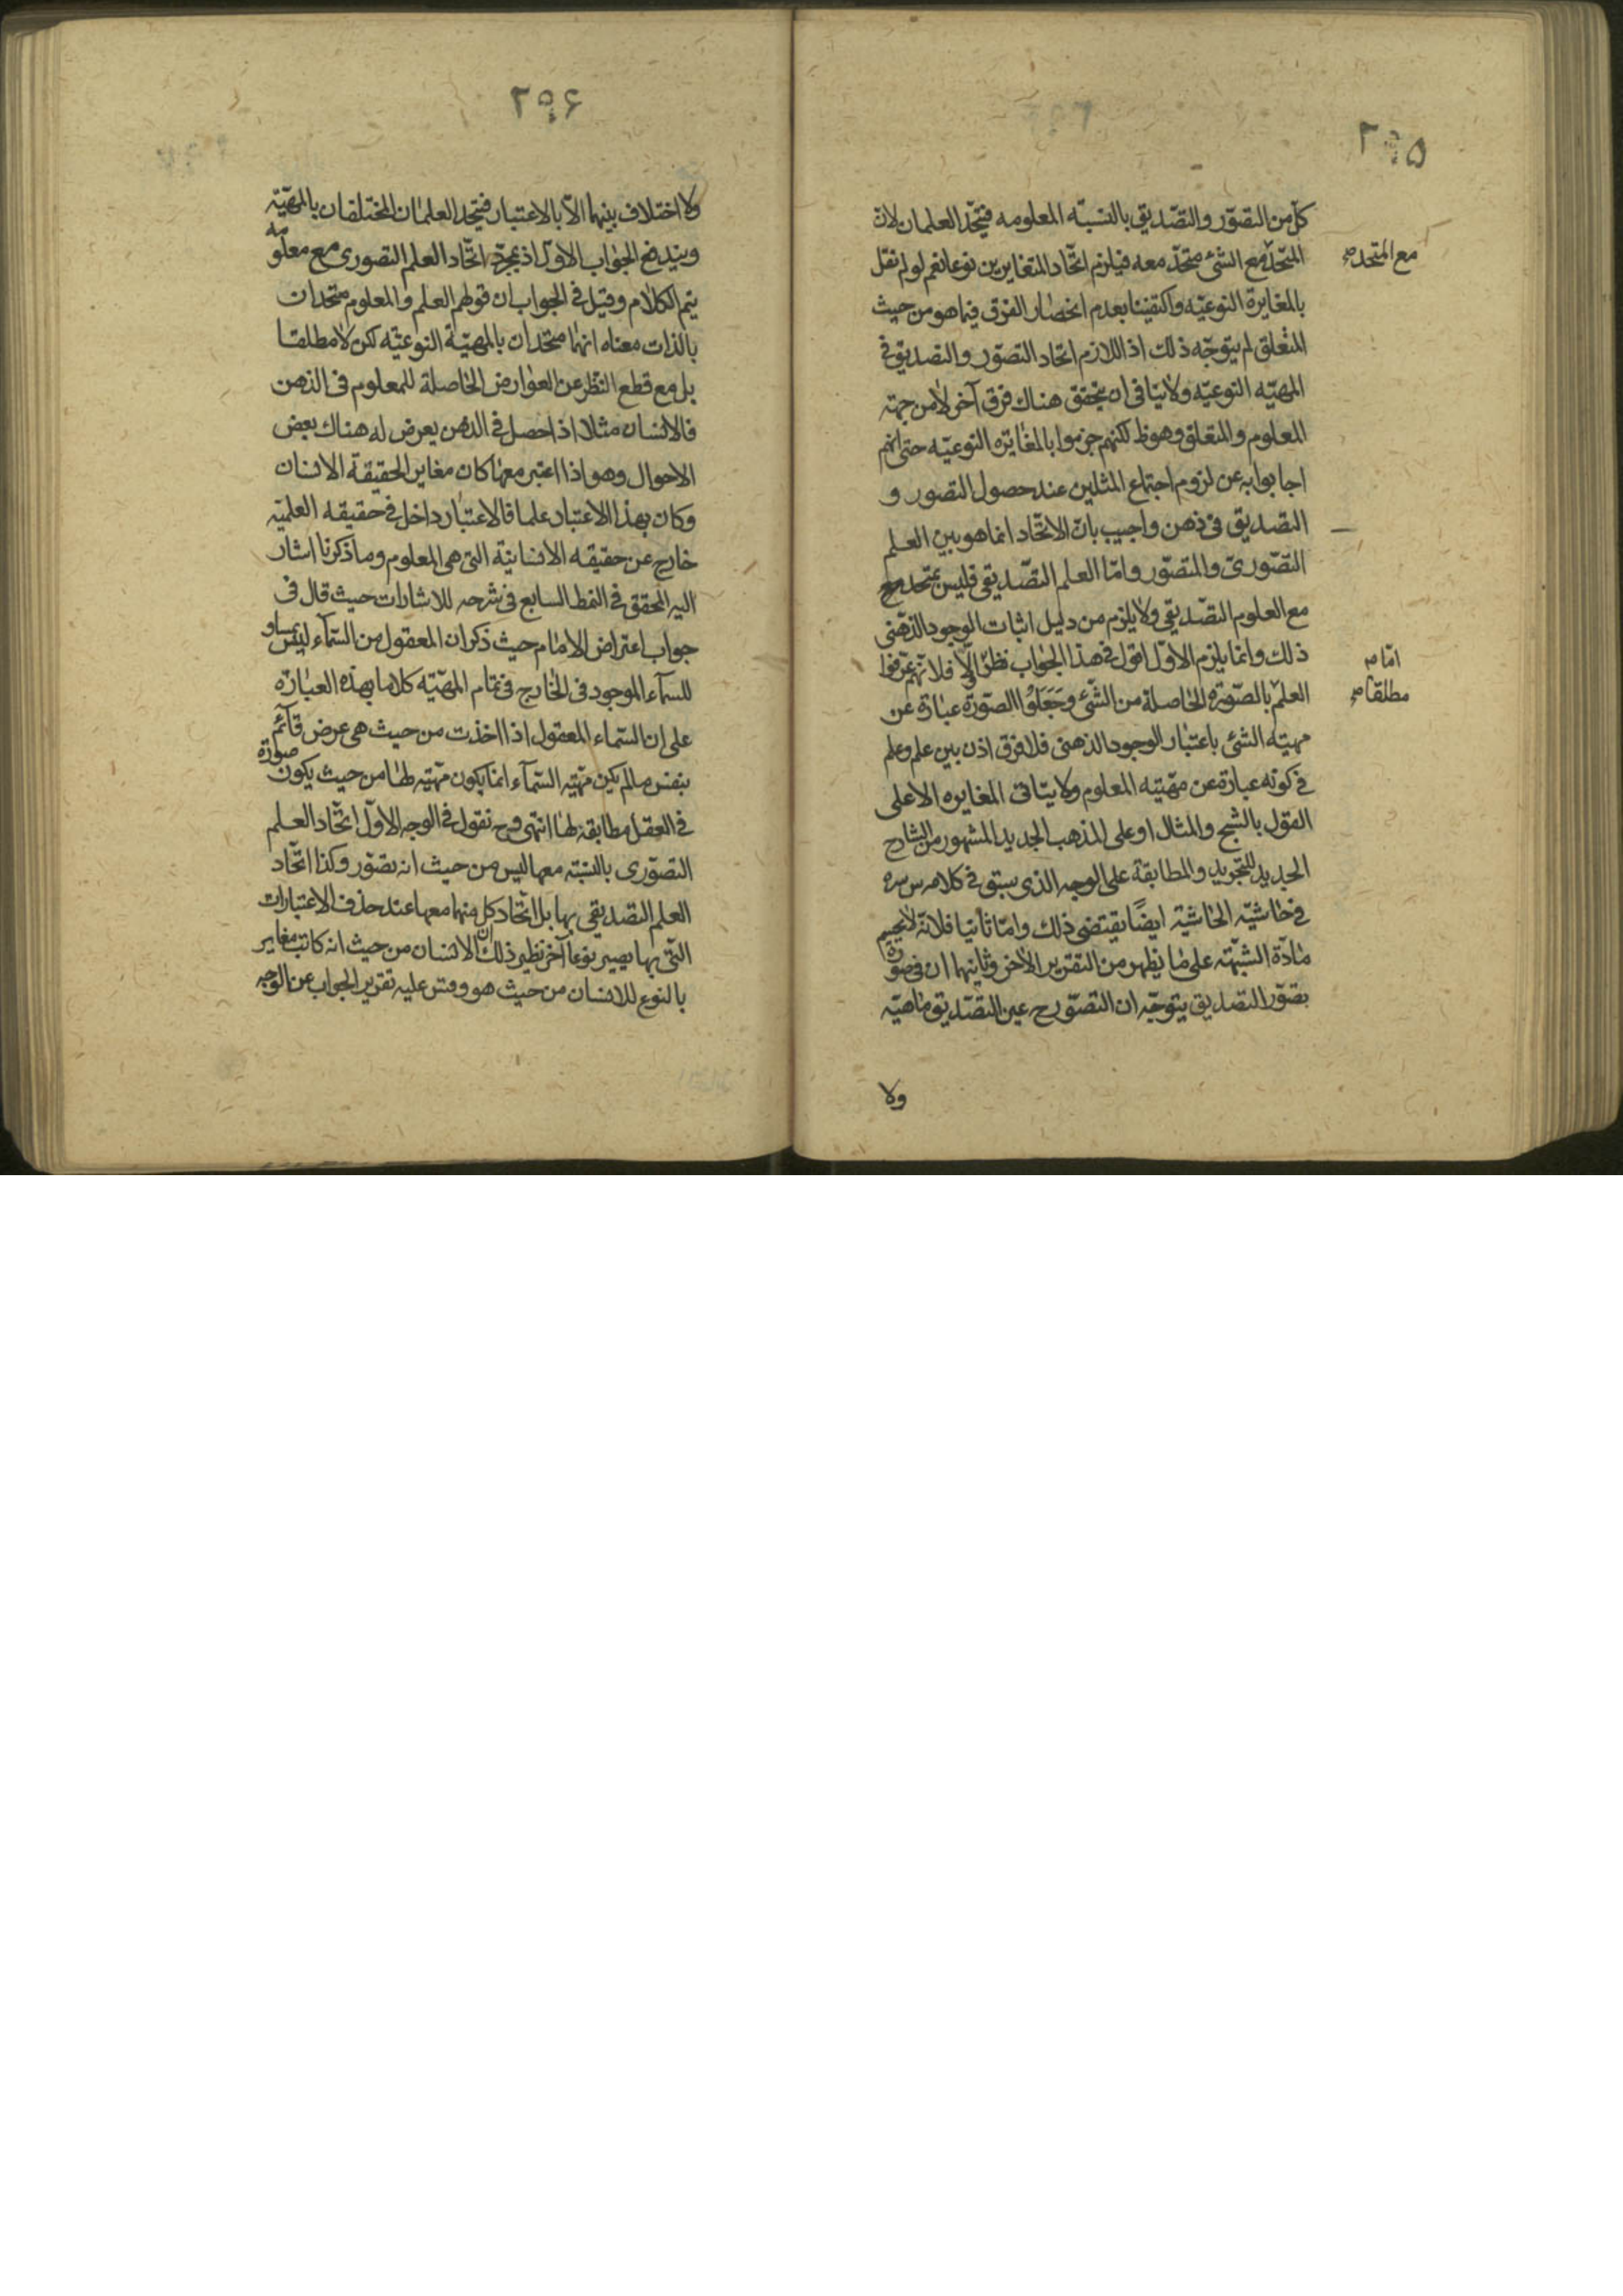 ۲۹۵
كل من التصوّر والتصّديق بالنسبّه المعلومه فيتحّد العلمان لان
المتحّد مع الشئ متحّد معه فيلزم اتحّاد المتغايرين نوعا نعم لو لم نقل
مع المتحد صح
بالمغايرة النوعيّه واكتفينا بعدم انحصار الفرق فيما هو من حيث
المتعلق لم يتوجّه ذلك اذ اللازم اتحاد التصوّر والتصديق في
المهيّه النوعيّه ولا ينافى ان يتحقق هناك فرق آخر لا من جهته
المعلوم والمتعلق وهو ظ لكنهم جزموا بالمغايره النوعيّه حتى انهم
اجابوا به عن لزوم اجتماع المثلين عند حصول التصور و
التصديق في ذهن واجيب بانّ الاتحّاد انما هو بين العلم
التصّورىّ والمتصوّر وامّا العلم التصّديقى فليس بمتحد مع
مع العلوم التصّديقى ولا يلزم من دليل اثبات الوجود الذهّنى
ذلك وانما يلزم الاوّل اقول في هذا الجواب نظر اوّلا فلانّهم عرّفوا
امّا صح
العلم بالصّوره الحاصلة من الشّئ وجَعَلوُا الصّورة عبارة عن
مطلقا صح
مهيّته الشئ باعتبار الوجود الذهنى فلا فرق اذن بين علم وعلم
في كونه عبارة عن مهّيته المعلوم ولا يتاتى المغايره الا على
القول بالشبح والمثال او على المذهب الجديد المشهور من الشارح
الجديد للتجريد والمطابقة على الوجه الذى سبق في كلامه س سره
في حاشيّه الحاشية ايضًا يقتضى ذلك وامّا ثانيا فلانّه لا يحسم
مادّة الشبّهة على ما يظهر من التقرير الآخر وثانيهما ان في صورة
تصّور التصديق يتوجّه ان التصّور ح عين التصّديق ماهيّه
ولا
۲۹۶
ولا اختلاف بينهما الاّ بالاعتبار فيتحد العلمان المختلفان بالمهيّة
ويندفع الجواب الاوّل اذ بمجرّد اتحّاد العلم التصورى مع معلومه
يتم الكلام وقيل في الجواب ان قولهم العلم والمعلوم متحدان
بالذات معناه انهما متحدان بالمهيّة النوعيّه لكن لا مطلقا
بل مع قطع النظر عن العوارض الحاصلة للمعلوم فى الذهن
فالانسان مثلا اذا حصل في الذهن يعرض له هناك بعض
الاحوال وهو اذا اعتبر معها كان مغاير الحقيقة الانسان
وكان بهذا الاعتبار علما فالاعتبار داخل في حقيقه العلميّه
خارج عن حقيقه الانسانية التى هى المعلوم وما ذكرنا اشار
اليه المحقق في النمط السابع فى شرحه للاشارات حيث قال فى
جواب اعتراض الامام حيث ذكر ان المعقول من السّماء ليس بمساو
للسّماء الموجود فى الخارج فى تمام المهيّه كلاما بهذه العبارة
على ان السّماء المعقول اذا اخذت من حيث هى عرض قائم
بنفس ما لم يكن مهّيه السّماء انما يكون مهّيه لها من حيث يكون صورة
في العقل مطابقة لها انتهى وح نقول في الوجه الاوّل اتحّاد العلم
التصوّرى بالنسبّة معها ليس من حيث انه تصوّر وكذا اتحّاد
العلم التصديقى بها بل اتحّاد كل منهما معها عند حذف الاعتبارات
التّى بها يصير نوعاً آخر نظير ذلك ان الانسان من حيث انه كاتب مغاير
بالنوع للانسان من حيث هو وقس عليه تقرير الجواب عن الوجه